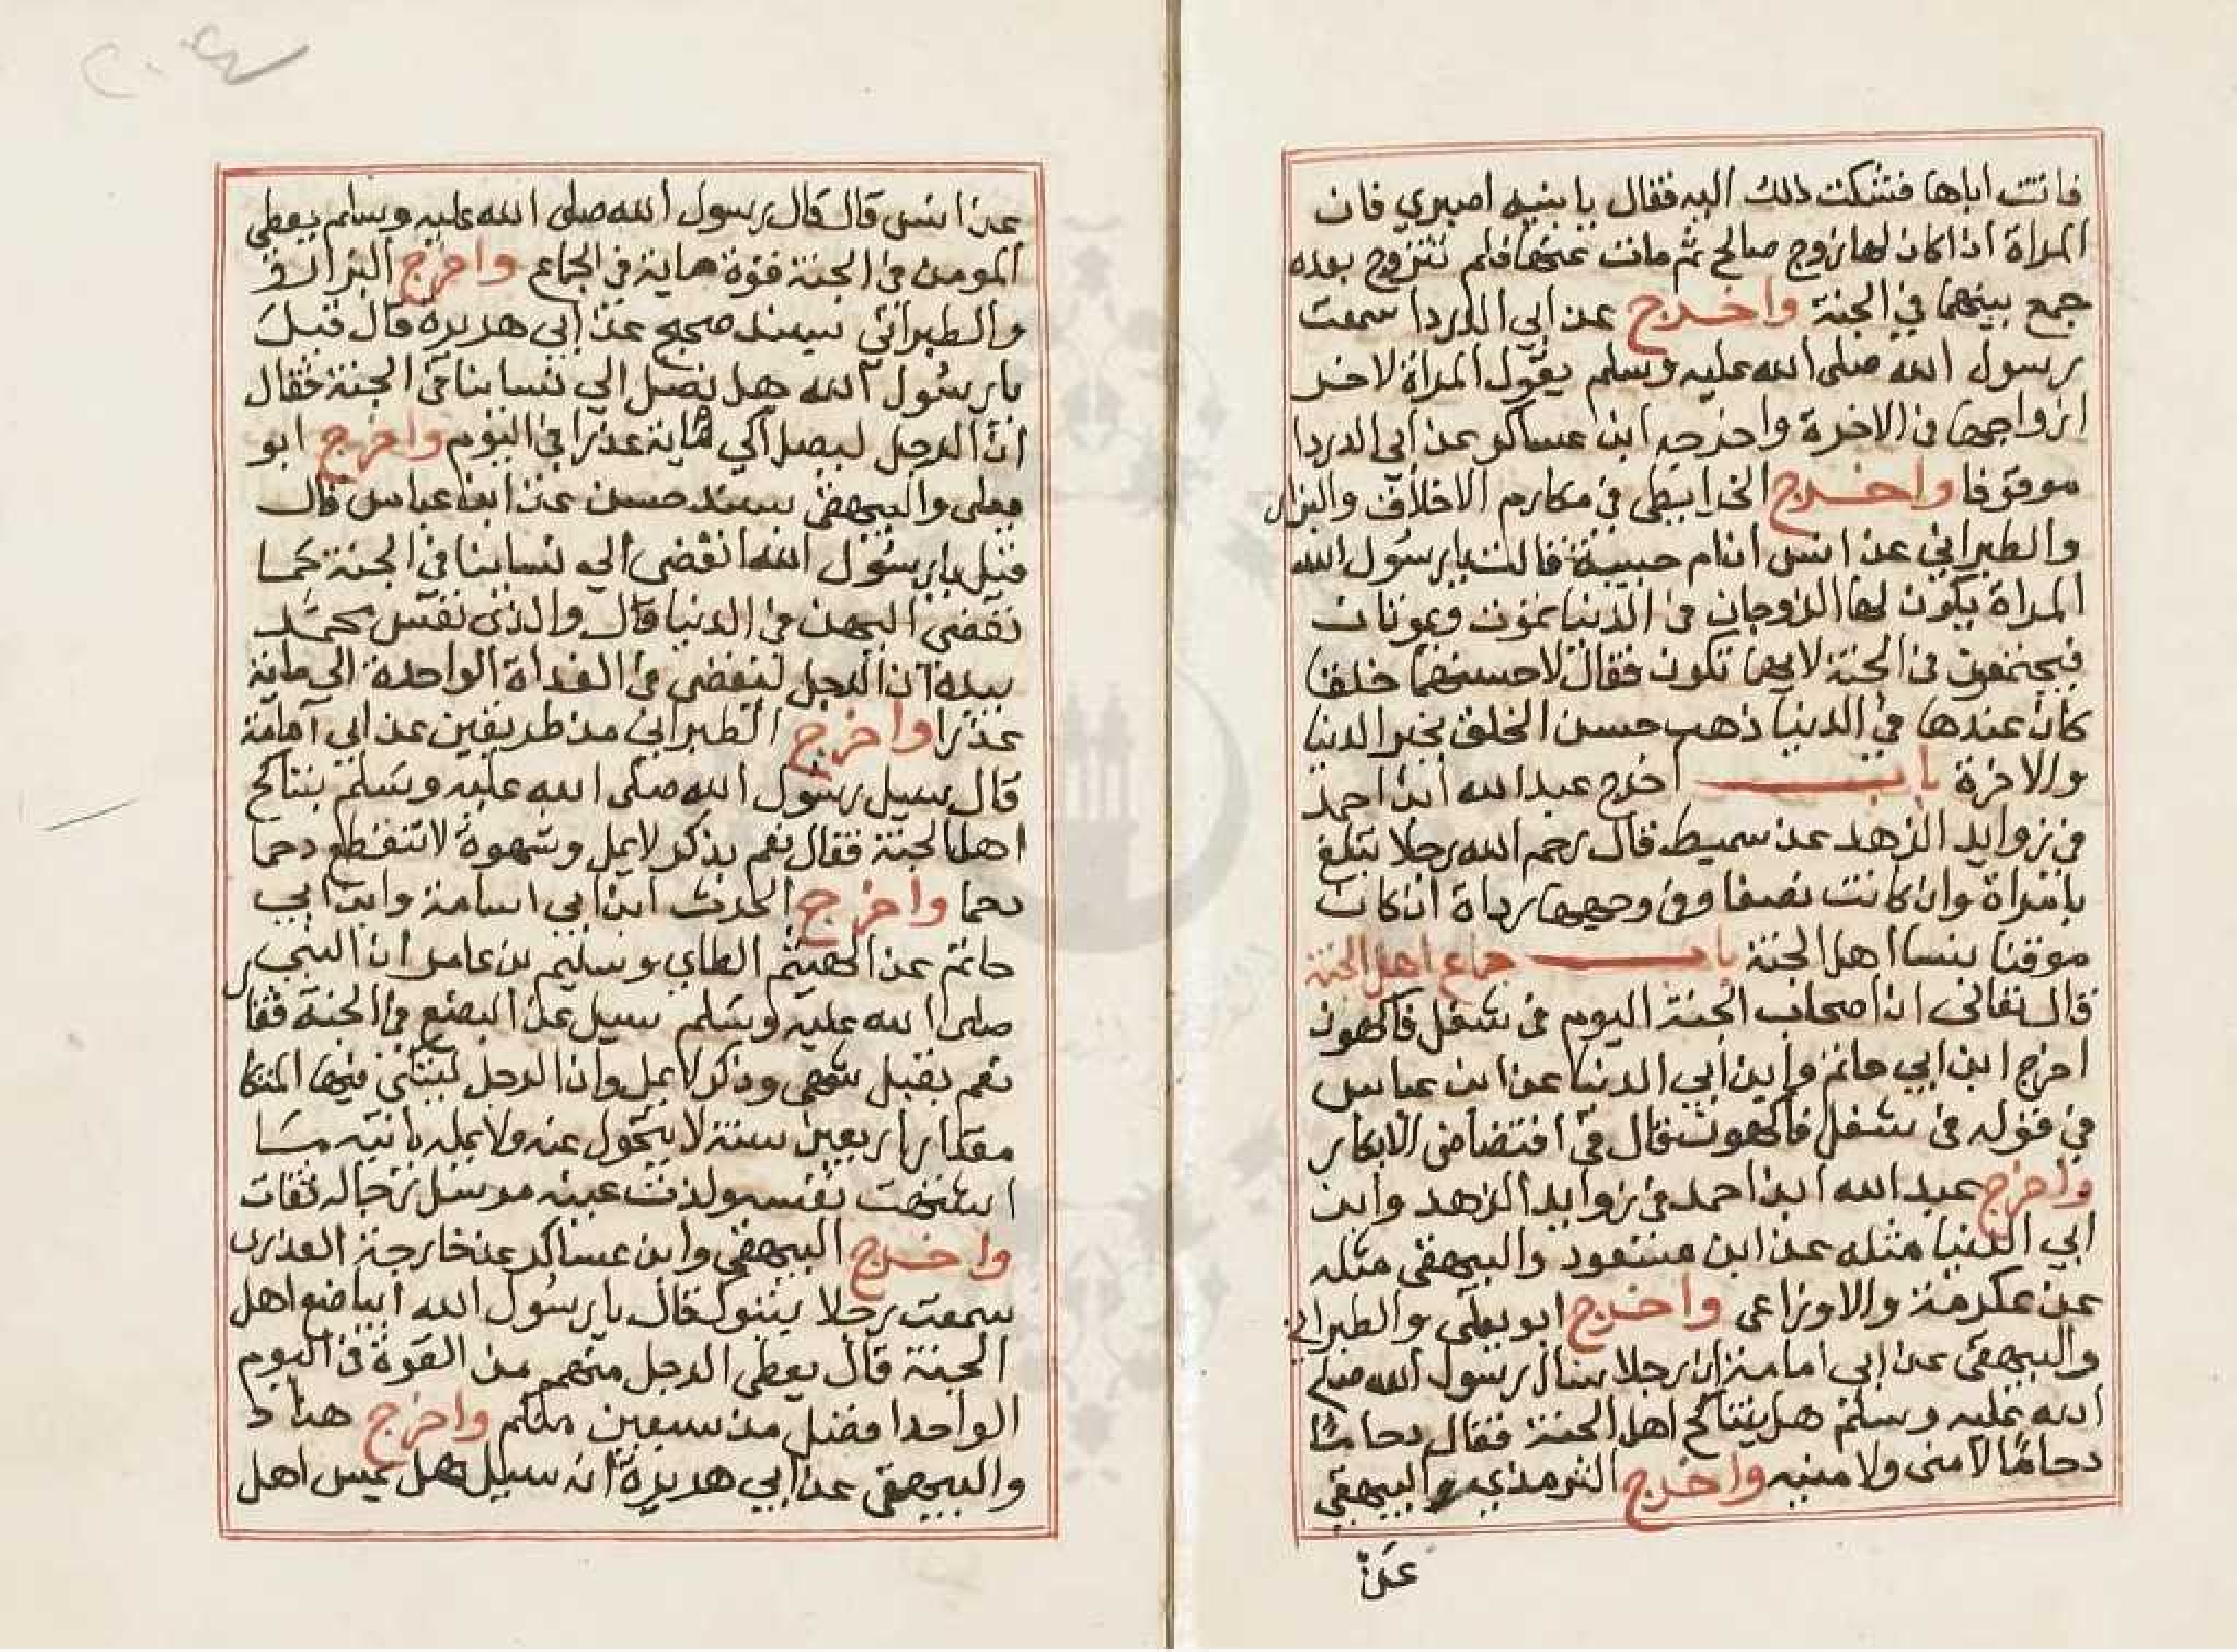 فاتت اباها فشكت ذلك اليه فقال يا بنيه اصبري فان
المراة اذا كان لها زوج صالح ثم مات عنها فلم تتزوج بعده
جمع بينهما في الجنة واخرج عن ابي الدردا سمعت
رسول الله صلى الله عليه وسلم يقول المراة لاخر
ازواجها في الاخرة واخرجه ابن عساكر عن ابي الدردا
موقوفا واخرج الخرايطى في مكارم الاخلاق والبزار
والطبراني عن انس ان ام حبيبة قالت يا رسول الله
المراة يكون لها الزوجان في الدنيا تموت ويموتان
فيجتمعون في الجنة لايهما تكون فقال لاحسنهما خلقا
كان عندها في الدنيا ذهب حسن الخلق بخير الدنيا
والاخرة باب اخرج عبد الله ابن احمد
في زوايد الزهد عن سميط قال رحم الله رجلا تبلغ
بامراة وان كانت نصفا وفي وجهها رداة ان كان
موقنا بنسا اهل الجنة باب جماع اهل الجنة
قال تعالى ان اصحاب الجنة اليوم في شغل فاكهون
اخرج ابن ابي حاتم وابن ابي الدنيا عن ابن عباس
في قوله في شغل فاكهون قال في افتضاض الابكار
واخرج عبد الله ابن احمد في زوايد الزهد وابن
ابي الدنيا مثله عن ابن مسعود والبيهقى مثله
عن عكرمة والاوزاعى واخرج ابو يعلى والطبراني
والبيهقى عن ابي امامة ان رجلا سال رسول الله صلى
الله عليه وسلم هل يتناكح اهل الجنة فقال دحاما
دحاما لا منى ولا منيه واخرج الترمذي والبيهقي
عن
عن انس قال قال رسول الله صلى الله عليه وسلم يعطى
المومن في الجنة قوة ماية في الجماع واخرج البزار
والطبراني بسند صحيح عن ابي هريرة قال قيل
يا رسول الله هل نصل الي نساينا في الجنة فقال
ان الرجل ليصل الي ماية عذرا في اليوم واخرج ابو
يعلى والبيهقي بسند حسن عن ابن عباس قال
قيل يا رسول الله انفضى الي نساينا في الجنة كما
نفضى اليهن في الدنيا قال والذى نفس محمد
بيده ان الرجل ليفضى في الغداة الواحدة الى ماية
عذرا واخرج الطبراني من طريقين عن ابي امامة
قال سيل رسول الله صلى الله عليه وسلم يتناكح
اهل الجنة فقال نعم بذكر لا يمل وشهوة لا تنقطع دحما
دحما واخرج الحرث ابن ابي اسامة وابن ابي
حاتم عن الهيثم الطاي وسليم بن عامر ان النبي
صلى الله عليه وسلم سيل عن البضع في الجنة فقال
نعم بقبل شهى وذكر لا يمل وان الرجل ليتكى فيها المتكا
مقدار اربعين سنة لا يتحول عنه ولا يمله ياتيه ما
اشتهت نفسه ولذت عينه مرسل رجاله ثقات
واخرج البيهقي وابن عساكر عن خارجة العذرى
سمعت رجلا بتبوك قال يا رسول الله ايباضع اهل
الجنة قال يعطى الرجل منهم من القوة في اليوم
الواحد افضل من سبعين منكم واخرج هناد
والبيهقي عن ابي هريرة انه سيل هل يمس اهل